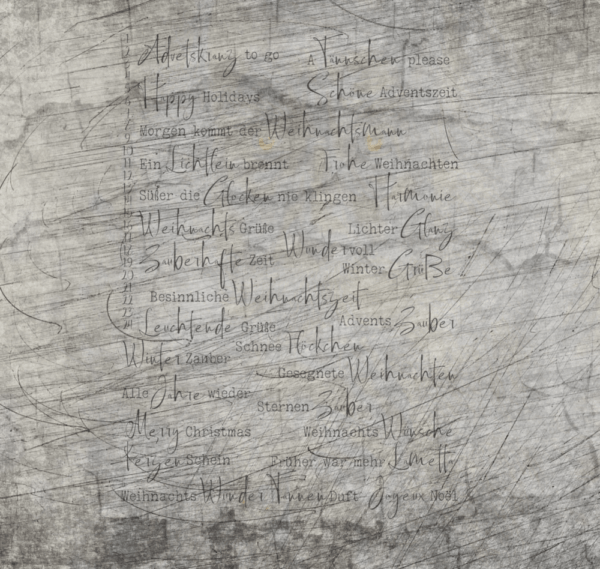 Adventskranz to go A Tännschen please
Happy Holidays Schöne Adventszeit
Morgen kommt der Weihnachtsmann
Ein Lichtlein brennt Frohe Weihnachten
Süßer die Glocken nie klingen Harmonie
Weihnachts Grüße Lichter Glanz
Zauberhafte Zeit Wundervoll
Winter Grüße
Besinnliche Weihnachtszeit
Leuchtende Grüße Advents Zauber
Winter Zauber Schnee Flöckchen
Gesegnete Weihnachten
Alle Jahre wieder
Sternen Zauber
Merry Christmas Weihnachts Wünsche
Kerzen Schein Früher war mehr Lametta
Weihnachts Wunder Tannen Duft Joyeux Noël